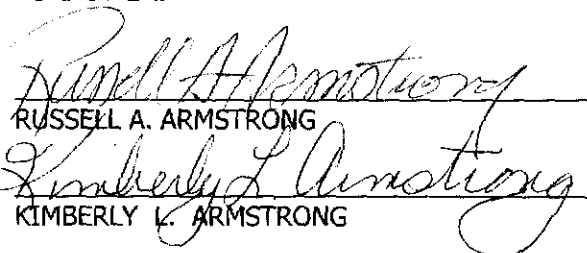 Russell A Armstrong
RUSSELL A. ARMSTRONG
Kimberly L Armstrong
KIMBERLY L. ARMSTRONG